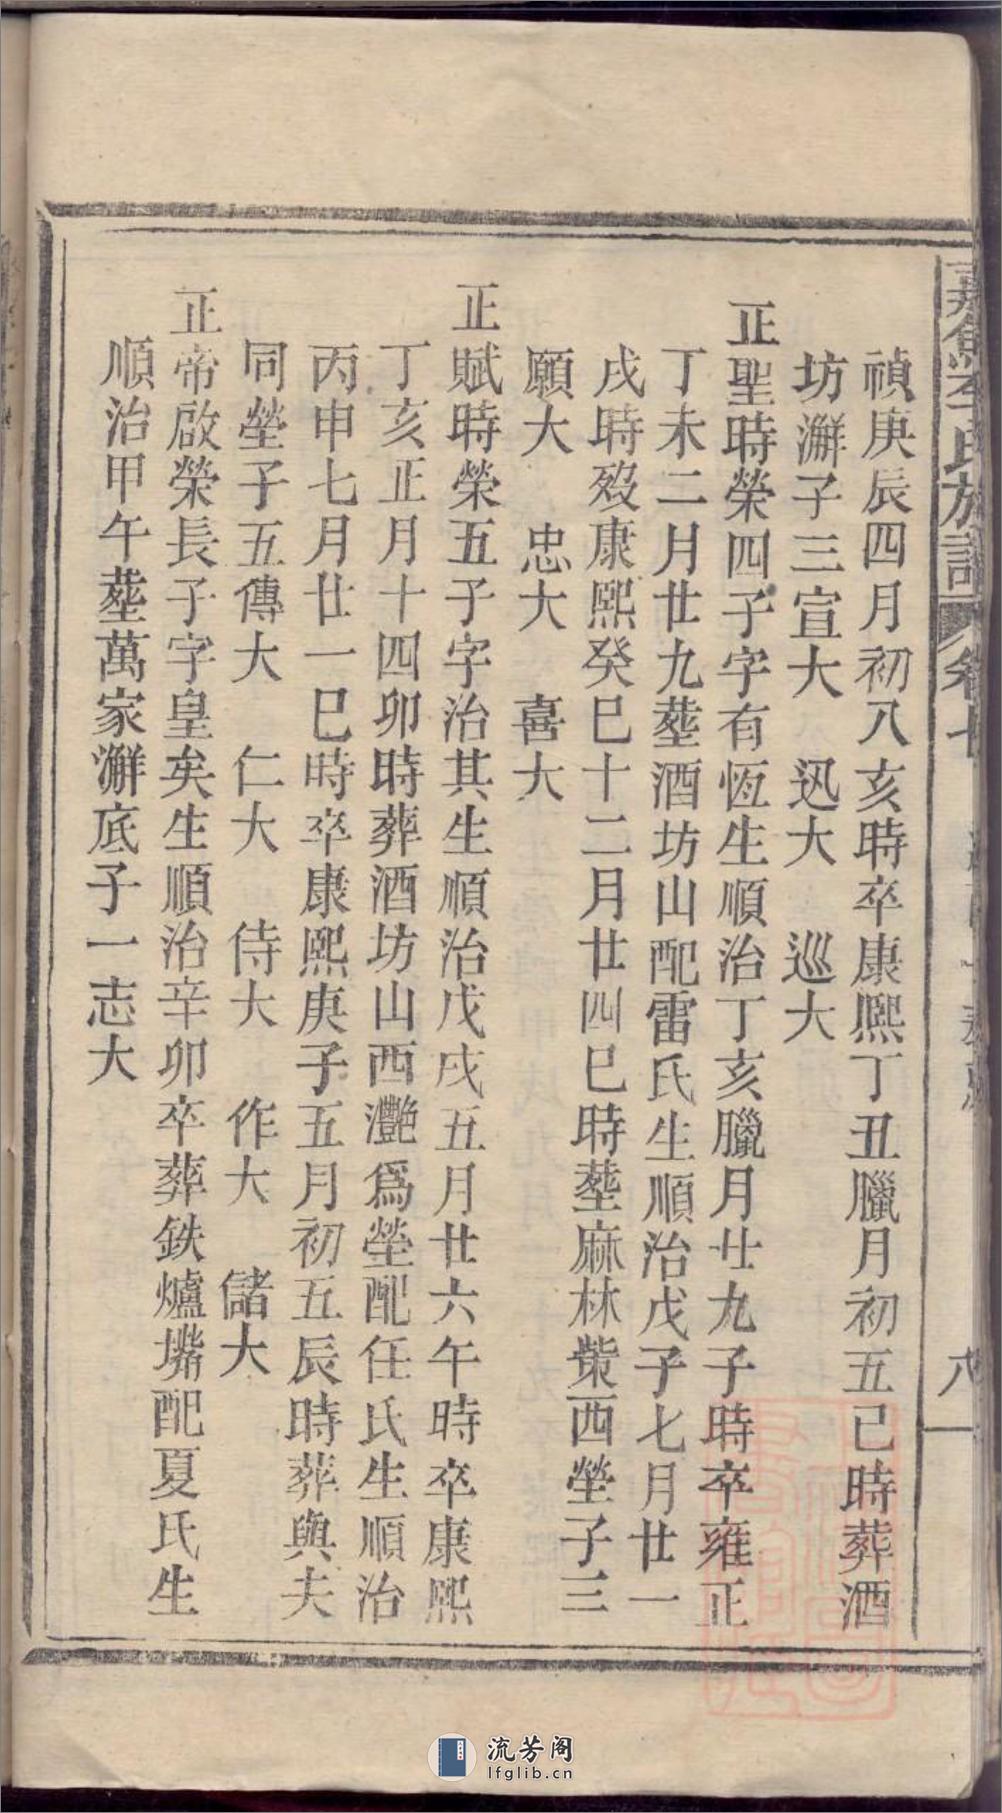 嘉魚李氏族譜 卷七 八
禎庚辰四月初八亥時卒康熙丁丑臘月初五己時葬酒
坊澥子三宣大 迅大 巡大
正聖時榮四子字有恆生順治丁亥臘月廿九子時卒雍正
丁未二月廿九塟酒坊山配雷氏生順治戊子七月廿一
戌時殁康熙癸巳十二月廿四巳時塟麻林柴西塋子三
願大 忠大 喜大
正賦時榮五子字治其生順治戊戌五月廿六午時卒康熙
丁亥正月十四卯時葬酒坊山西灔為塋配任氏生順治
丙申七月廿一巳時卒康熙庚子五月初五辰時葬與夫
同塋子五傳大 仁大 侍大 作大 儲大
正帝啟榮長子字皇矣生順治辛卯卒葬鉄爐墈配夏氏生
順治甲午塟萬家澥底子一志大
流芳阁
lfglib.cn